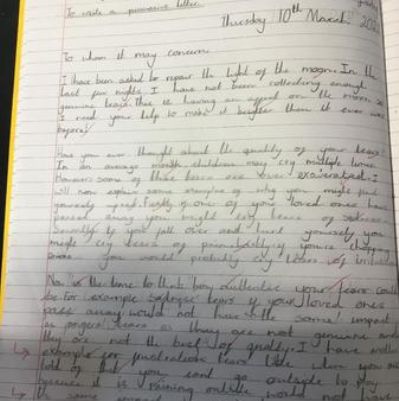 To write a persuasive letter.
Thursday 10th March 202
To whom it may concern
I have been asked to repair the light of the moon. In the
last few nights, I have not been collecting enough
genuine tears. This is having an effect on the moon so
I need your help to make it brighter than it ever was
before!
Have you ever thought about the quality of your tears?
In an average month children may cry multiple times.
However some of these tears are over
will now explain some examples of why you might find
yourself upset. Firstly if one of your loved ones have
passed away you might cry tears of sadness.
Secondly if you fall over and hurt yourself you
might cry tears of
you would probably cry tears of
Now is the time to think how your tears could
be. For example sadness tears if your loved ones
pass away would not have the same impact
as tears as they are not genuine and
they are not the best of quality. I have another
example for frustration tears like when you are
told of that you cant go outside to play
because it is raining outside would not have
the same